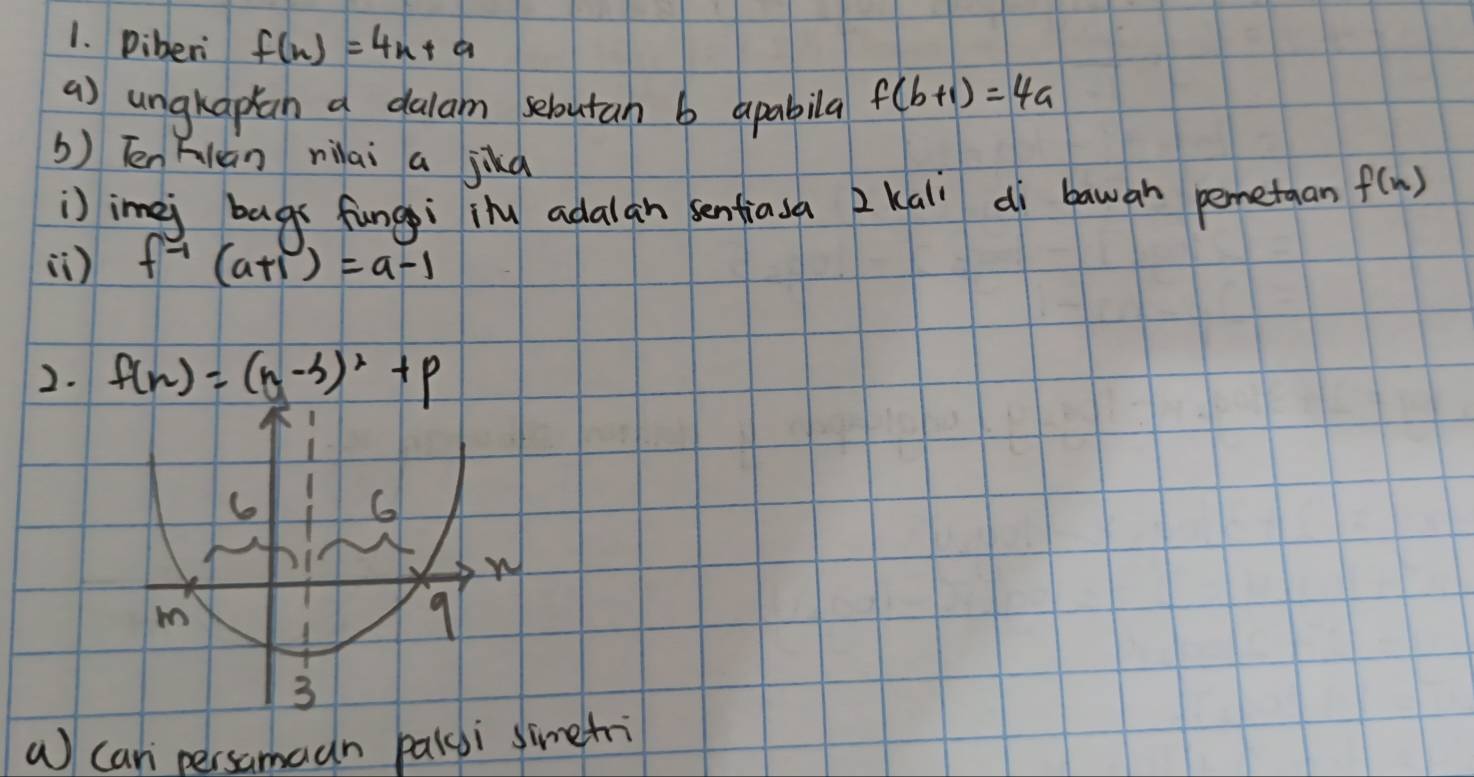 1. Diberi f(n) = 4n + a
a) ungkapkan a dalam sebutan b apabila f(b+1) = 4a
b) Tentukan nilai a jika
i) imej bagi fungsi itu adalah sentiasa 2 kali di bawah pemetaan f(n)
ii) f⁻¹ (a+1) = a-1
2. f(n) = (n-3)² + p
6 6
n
m 9
3
a) Cari persamaan paksi simetri